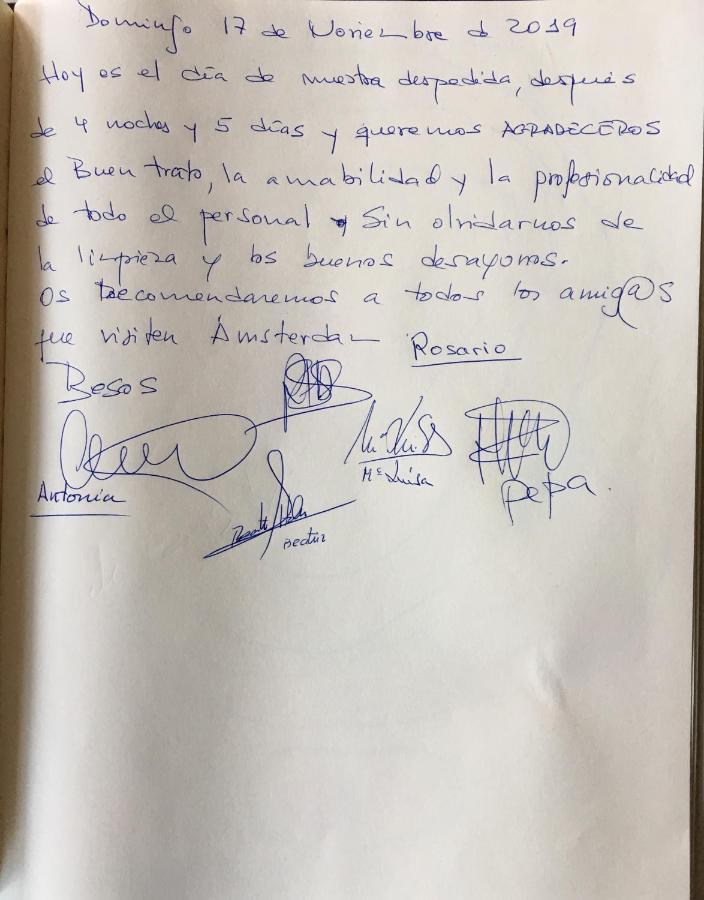 Domingo 17 de Noviembre de 2019
Hoy es el día de nuestra despedida, después
de 4 noches y 5 días y queremos AGRADECEROS
el Buen trato, la amabilidad y la profesionalidad
de todo el personal y Sin olvidarnos de
la limpieza y los buenos desayunos.
Os Recomendaremos a todos los amig@s
que visiten Ámsterdam
Rosario
Besos
Mª Luisa
Antonia
Pepa.
Beatriz